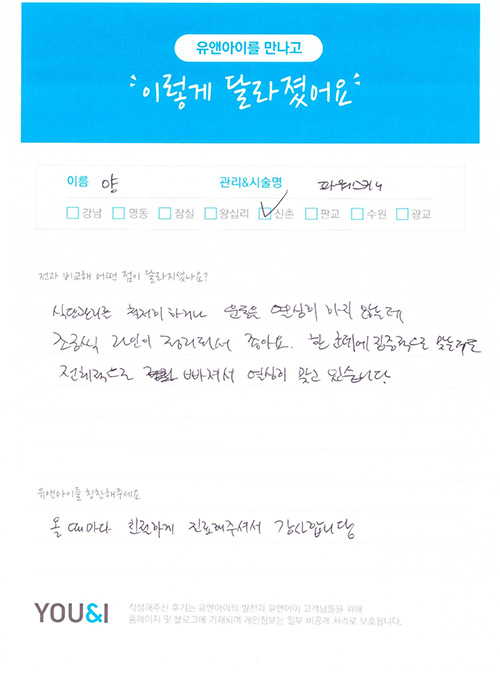 유앤아이를 만나고
이렇게 달라졌어요
이름 양 관리&시술명 파워스키니
강남 명동 잠실 왕십리 신촌 판교 수원 광교
전과 비교해 어떤 점이 달라지셨나요?
식단관리는 철저히 하거나 운동은 열심히 하지 않는데
조금씩 라인이 정리되서 좋아요. 한 군데에 집중적으로 맞는데도
전체적으로 빠져서 열심히 맞고 있습니다
유앤아이를 칭찬해주세요
올 때마다 친절하게 진료해주셔서 감사합니당
YOU&I
작성해주신 후기는 유앤아이의 발전과 유앤아이 고객님들을 위해
홈페이지 및 블로그에 기재되며 개인정보는 일부 비공개 처리로 보호됩니다.